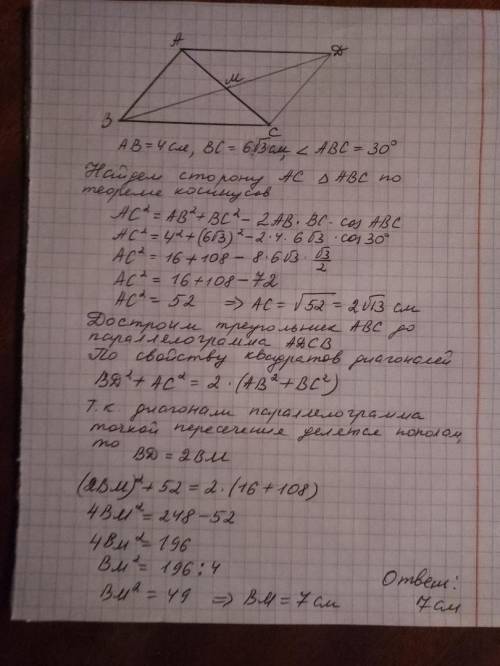 A D
M
B C
AB = 4 см, BC = 6√3 см, ∠ ABC = 30°
Найдем сторону AC △ ABC по
теореме косинусов
AC² = AB² + BC² - 2AB · BC · cos ABC
AC² = 4² + (6√3)² - 2 · 4 · 6√3 · cos 30°
AC² = 16 + 108 - 8 · 6√3 · √3/2
AC² = 16 + 108 - 72
AC² = 52 ⇒ AC = √52 = 2√13 см
Достроим треугольник ABC до
параллелограмма ADCB
По свойству квадратов диагоналей
BD² + AC² = 2 · (AB² + BC²)
Т.к. диагонали параллелограмма
точкой пересечения делятся пополам,
то
BD = 2BM
(2BM)² + 52 = 2 · (16 + 108)
4BM² = 248 - 52
4BM² = 196
BM² = 196 : 4
BM² = 49 ⇒ BM = 7 см
Ответ:
7 см